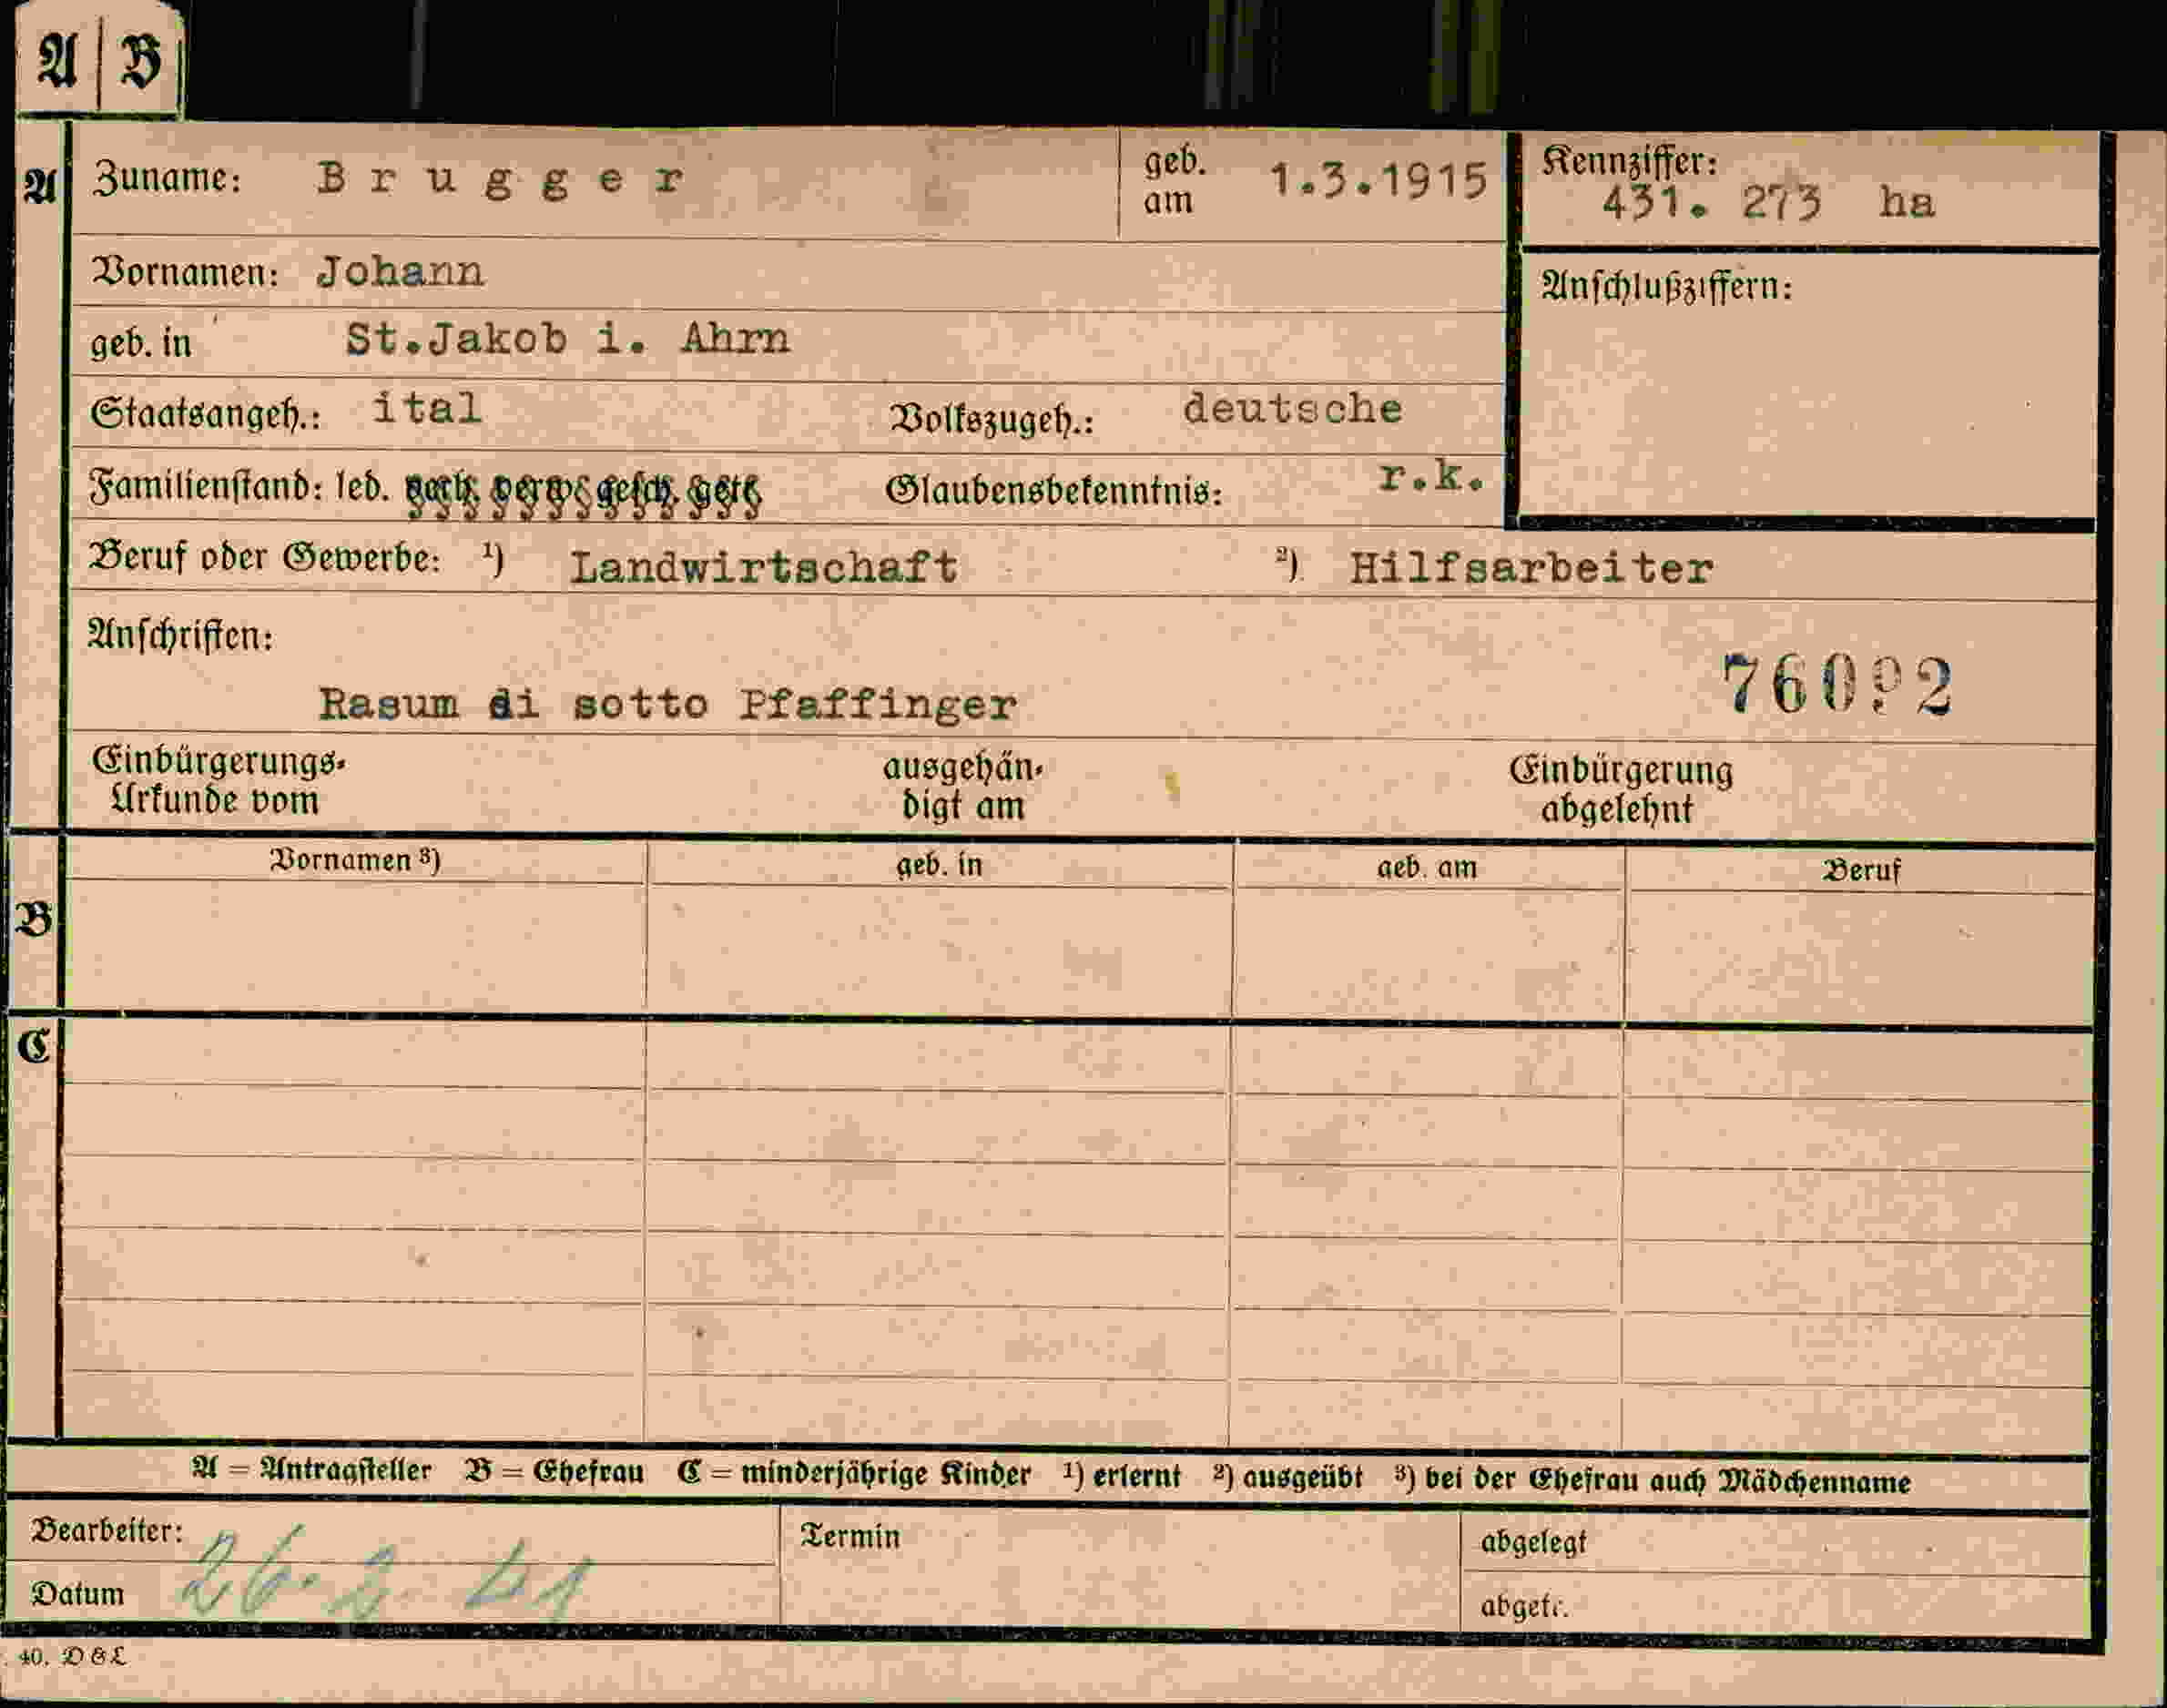 A | B
A Zuname: Brugger geb. am 1.3.1915 Kennziffer: 431. 273 ha
Vornamen: Johann Anschlußziffern:
geb. in St.Jakob i. Ahrn
Staatsangeh.: ital Volkszugeh.: deutsche
Familienstand: led. gesch. Glaubensbekenntnis: r.k.
Beruf oder Gewerbe: ¹) Landwirtschaft ²) Hilfsarbeiter
Anschriften:
Rasum di sotto Pfaffinger
Einbürgerungs-
Urkunde vom
ausgehän-
digt am
Einbürgerung
abgelehnt
B Vornamen ³) geb. in geb. am Beruf
C
A = Antragsteller B = Ehefrau C = minderjährige Kinder ¹) erlernt ²) ausgeübt ³) bei der Ehefrau auch Mädchenname
Bearbeiter: Termin abgelegt
Datum 26. 2. 41 abgetr.
40. D&L